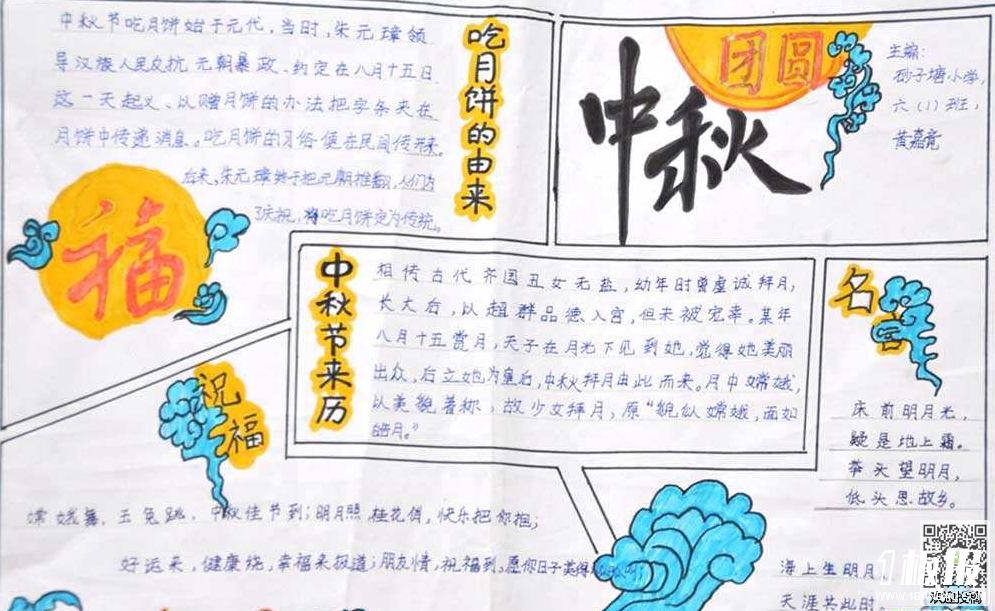 中秋节吃月饼始于元代,当时,朱元璋领
导汉族人民反抗元朝暴政、约定在八月十五日
这一天起义、以赠月饼的办法把字条夹在
月饼中传递消息。吃月饼的习俗便在民间传开来。
后来,朱元璋终于把元朝推翻,人们为
了庆祝,将吃月饼定为传统。
吃月饼的由来
团圆
中秋
主编:
砂子塘小学,
六(1)班,
黄嘉竟
福
中秋节来历
相传古代齐国丑女无盐,幼年时曾虔诚拜月,
长大后,以超群品德入宫,但未被宠幸。某年
八月十五赏月,天子在月光下见到她,觉得她美丽
出众,后立她为皇后,中秋拜月由此而来。月中嫦娥,
以美貌著称,故少女拜月,愿“貌似嫦娥,面如
皓月。”
名言
床前明月光,
疑是地上霜。
举头望明月,
低头思故乡。
海上生明月,
天涯共此时
祝福
嫦娥舞、玉兔跳、中秋佳节到;明月照,桂花俏,快乐把你抱;
好运来,健康绕,幸福来报道;朋友情,祝福到,愿你日子美得
欢迎投稿